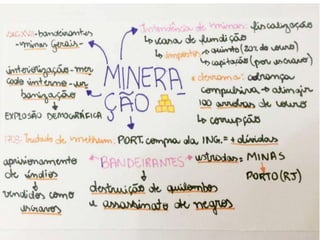 SEC. XVII - bandeirantes
- Minas Gerais -
interiorização - mer
cado interno - ur
banização
EXPLOSÃO DEMOGRÁFICA
MINERA
ÇÃO
Intendência de minas: fiscalização
casa de fundição
impostos
quinto (20% do ouro)
capitação (por escravo)
derrama: cobrança
compulsiva → atingir
100 arrobas de ouro
↳ corrupção
1703 - Tratado de methuen: PORT. compra da ING. = + dívidas
BANDEIRANTES
aprisionamento
de índios
vendidos como
escravos
destruição de quilombos
e assassinato de negros
estradas = MINAS
PORTO (RJ)